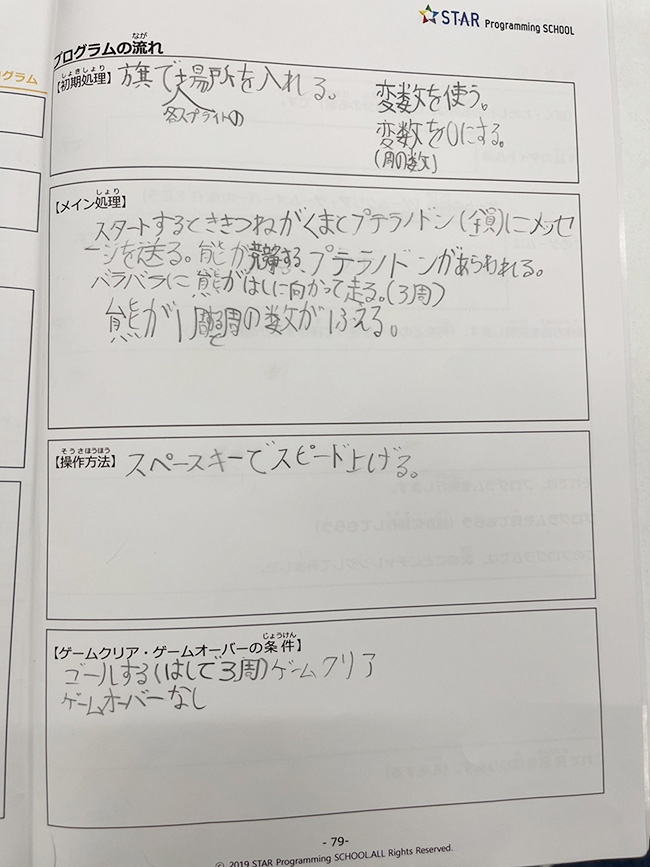 STAR Programming SCHOOL
プログラムの流れ
なが
グラム
【初期処理】旗で場所を入れる。
しょきしょり
各スプライトの
変数を使う。
変数を0にする。
(周の数)
【メイン処理】
しょり
スタートするとききつねがくまとプテラノドン(全員)にメッセ
ージを送る。熊が競争する、プテラノドンがあらわれる。
バラバラに熊がはしに向かって走る。(3周)
熊が1周 周の数がふえる。
【操作方法】スペースキーでスピード上げる。
そうさほうほう
【ゲームクリア・ゲームオーバーの条件】
じょうけん
ゴールする(はしで3周)ゲームクリア
ゲームオーバーなし
-79-
© 2019 STAR Programming SCHOOL.ALL Rights Reserved.